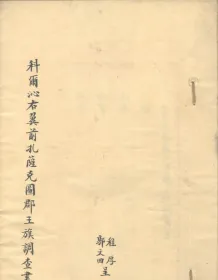 科爾沁右翼前扎薩克圖郡王旗調查書
程厚
鄭文田 呈